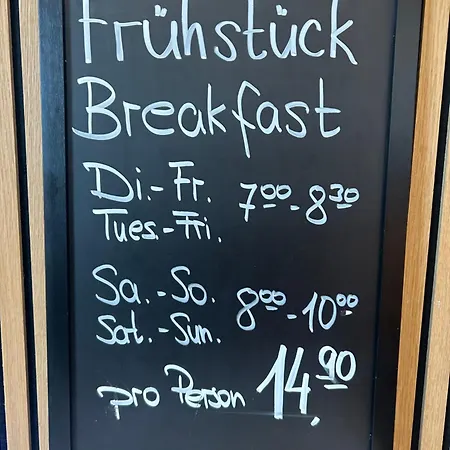 Frühstück
Breakfast
Di.-Fr. 7⁰⁰-8³⁰
Tues.-Fri.
Sa.-So. 8⁰⁰-10⁰⁰
Sat.-Sun.
pro Person 14.⁹⁰